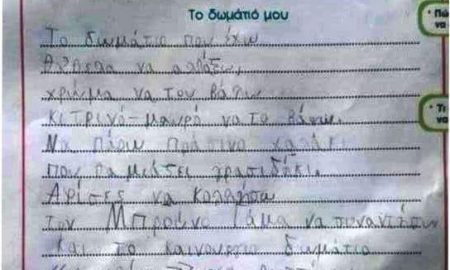 Το δωμάτιό μου
Το δωμάτιο που έχω
θέλω να αλλάξω,
χρώμα να του βάψω
κιτρινό-μαυρο να το βάψω.
Να πάρω πράσινο χαλάκι
που θα μιάζει γρασιδάκι.
Αφίσες να κολλήσω
τον Μπρούνο Γάμα να συναντήσω
και το καινουργιο δωμάτιο
Πώ
να
Τι
να